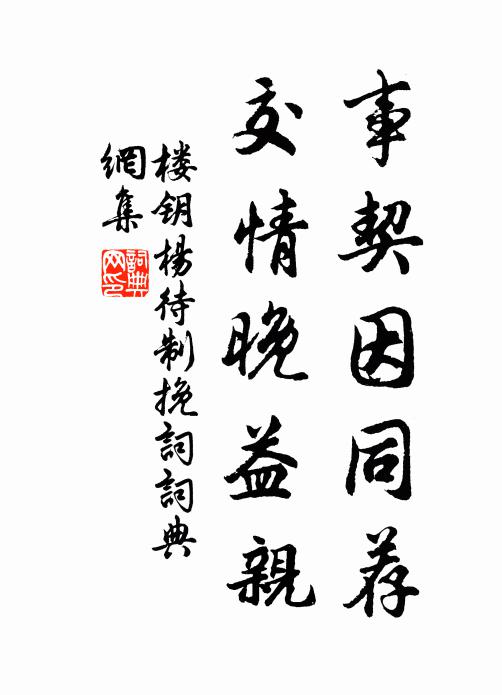 事契因同荐
交情晚益親
楼钥楊待制挽詞詞典
網集
詞典网印